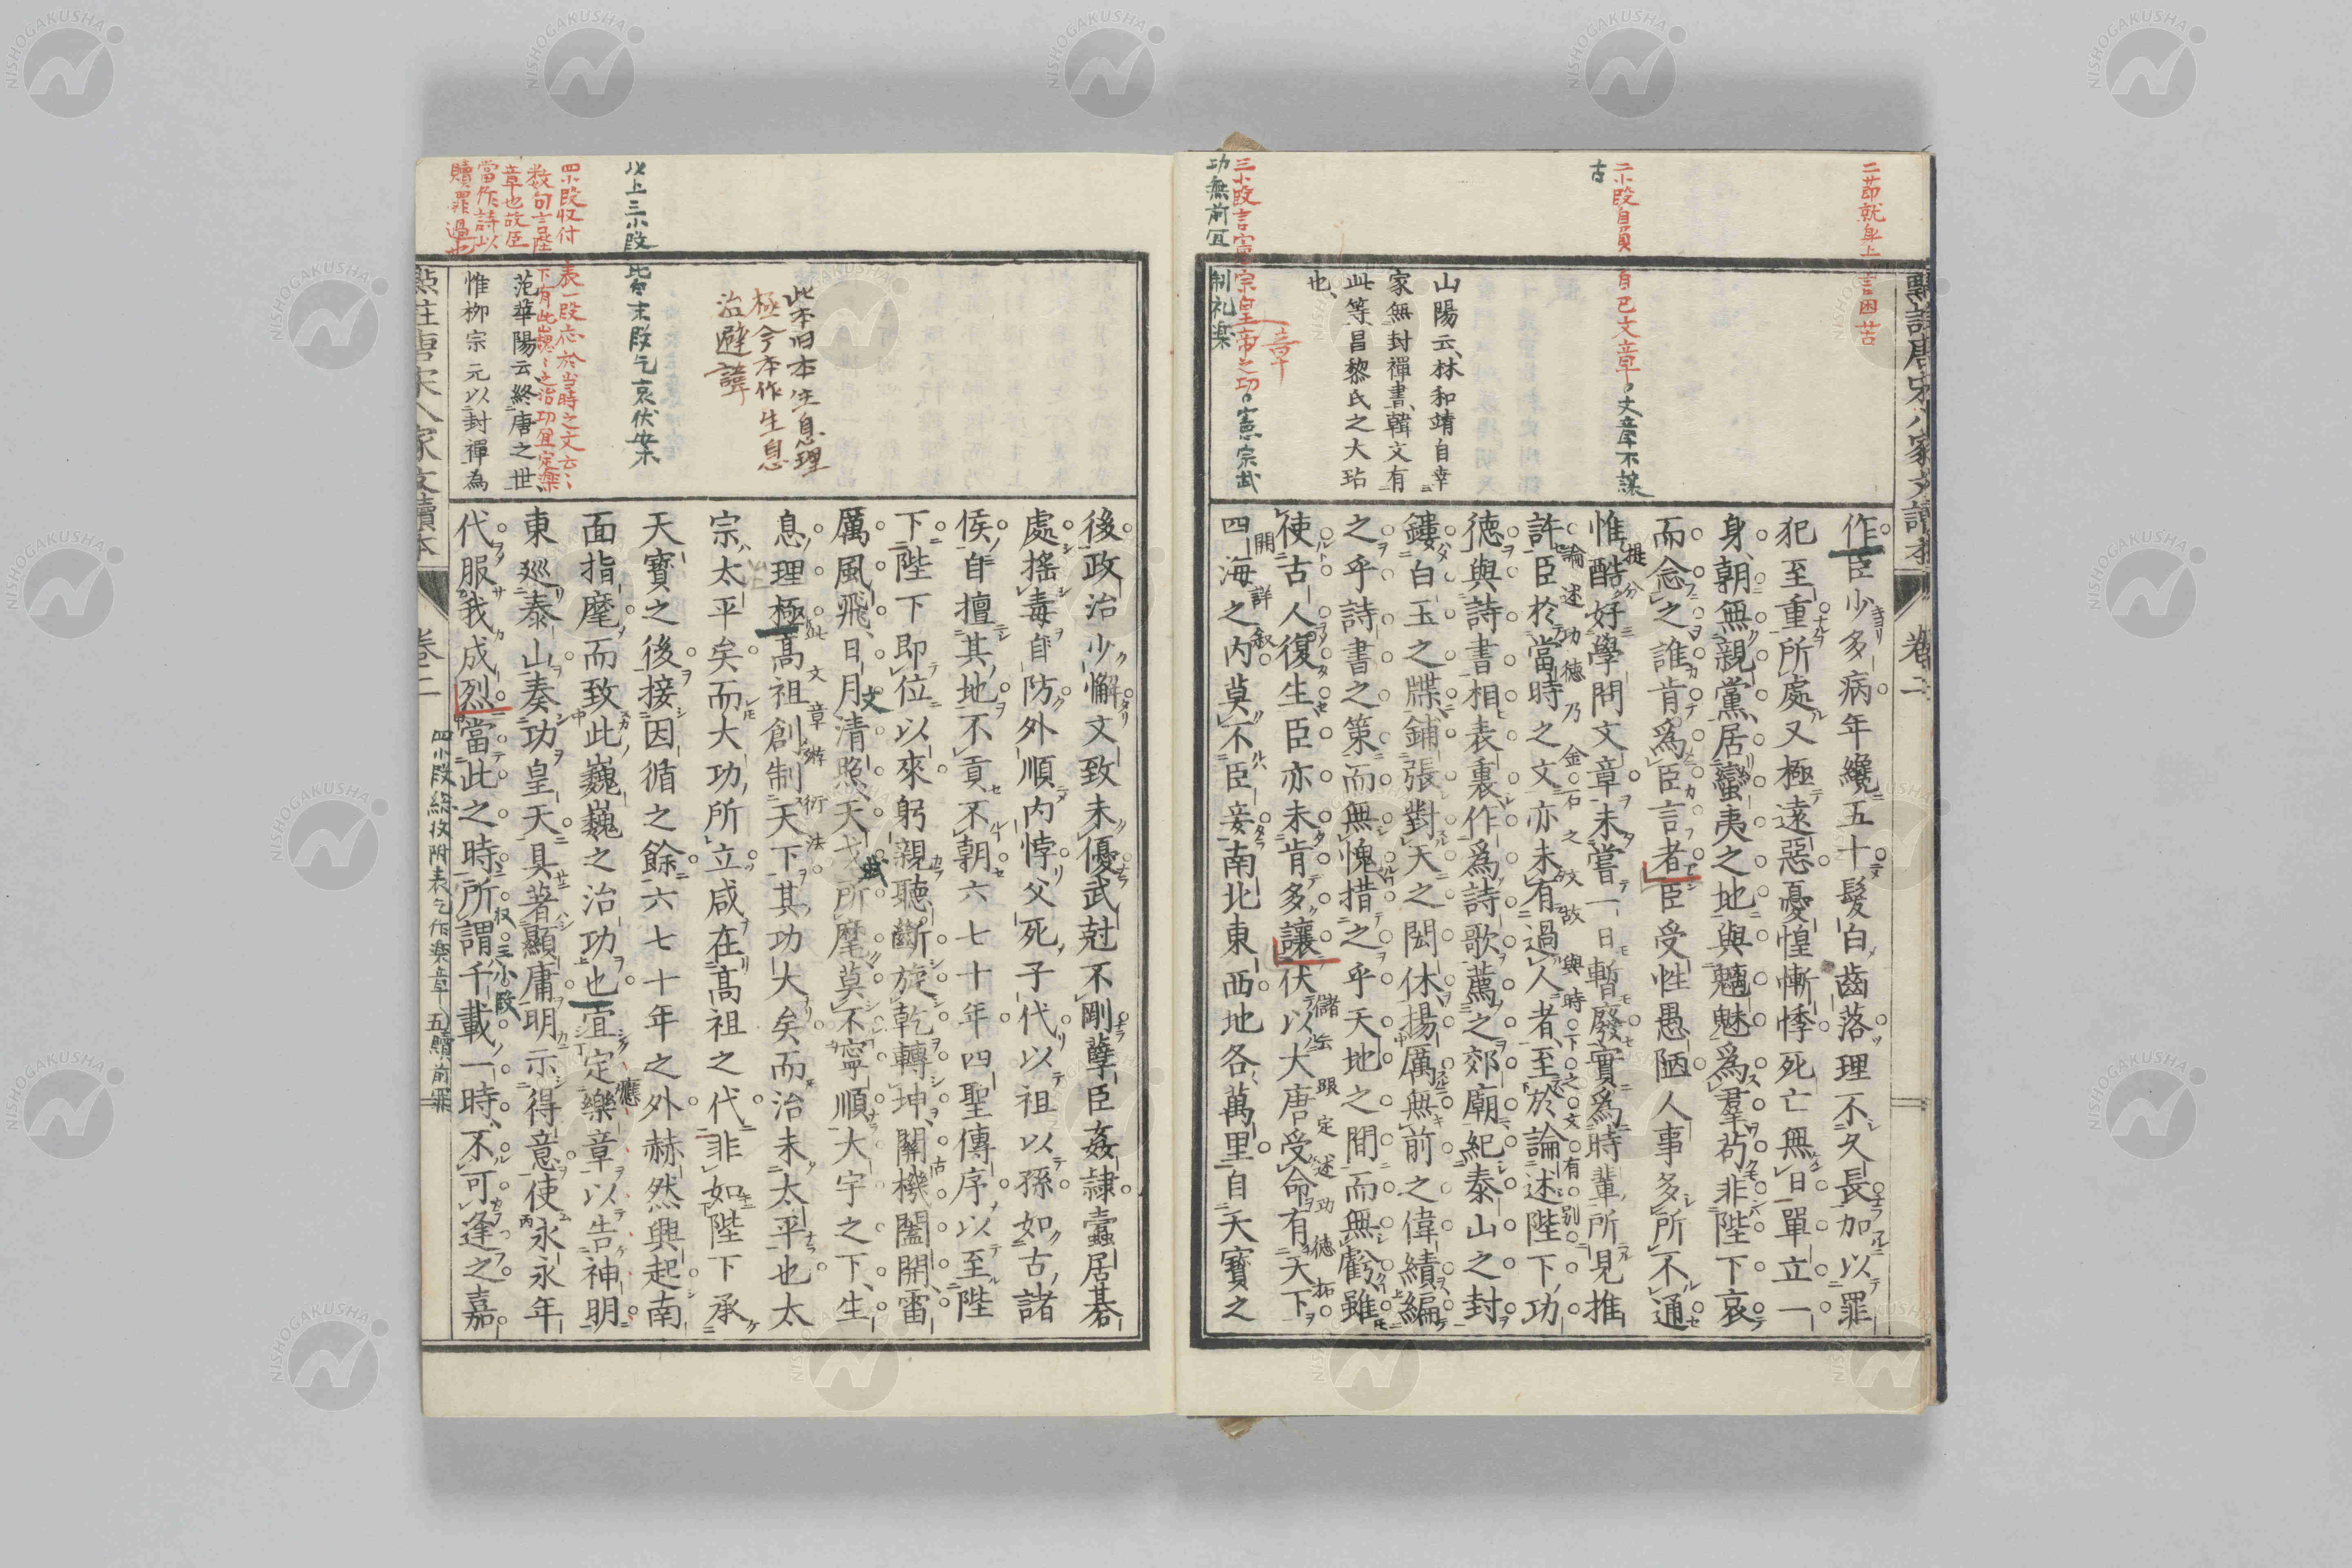 二節就身上言困苦
二小段自負自己文章
文章不讓
古
山陽云、林和靖自幸
家無封禪書、韓文有
此等、昌黎氏之大玷
也、
三小段言憲宗皇帝之功
一章
憲宗武
功無前宜
制礼楽
作臣少多病年纔五十髮白齒落理不久長加以罪
犯至重所處又極遠惡憂惶慚悸死亡無日單立一
身朝無親黨居蠻夷之地與魑魅爲羣苟非陛下哀
而念之誰肯爲臣言者臣受性愚陋人事多所不通
惟酷好學問文章未嘗一日暫廢實爲時輩所見推
提分
許臣於當時之文亦未有過人者至於論述陛下功
論述功德乃金石之文故與時下之文有別
德與詩書相表裏作爲詩歌薦之郊廟紀泰山之封
鏤白玉之牒鋪張對天之閎休揚厲無前之偉績編
之乎詩書之策而無愧措之乎天地之間而無虧雖
使古人復生臣亦未肯多讓伏以大唐受命有天下
儲云跟定述功德柘
四海之内莫不臣妾南北東西地各萬里自天寶之
開詳叙
點註唐宋八家文讀本
卷二
後政治少懈文致未優武尅不剛孽臣姦隷蠹居碁
處搖毒自防外順内悖父死子代以祖以孫如古諸
侯自擅其地不貢不朝六七十年四聖傳序以至陛
下陛下即位以來躬親聽斷旋乾轉坤關機闔開雷
厲風飛日月清照天戈所麾莫不寧順大宇之下生
文
武
息理極高祖創制天下其功大矣而治未太平也太
此文章辮衍法
宗太平矣而大功所立咸在高祖之代非如陛下承
天寶之後接因循之餘六七十年之外赫然興起南
面指麾而致此巍巍之治功也宜定樂章以告神明
應
東巡泰山奏功皇天具著顯庸明示得意使永永年
代服我成烈當此之時所謂千載一時不可逢之嘉
收三小段
四小段総收附表乞作樂章
五贖前罪
此本旧本生息理
極今本作生息
治避諱
以上三小段皆為末段乞哀伏案
四小段收付表一段忘於当時之文云〻
数句言陛下有此巍〻之治功宜定楽
章也故臣
當作詩以
贖罪過也
范華陽云、終唐之世、
惟柳宗元以封禪為
點註唐宋八家文讀本
卷二
NISHOGAKUSHA